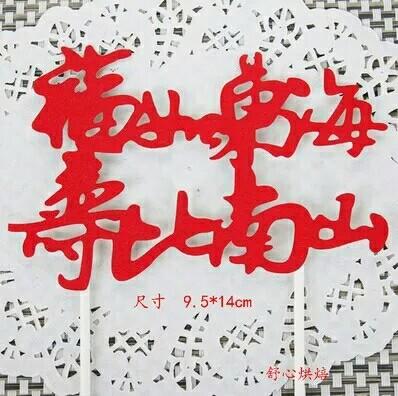 福如东海
寿比南山
尺寸 9.5*14cm
舒心烘焙